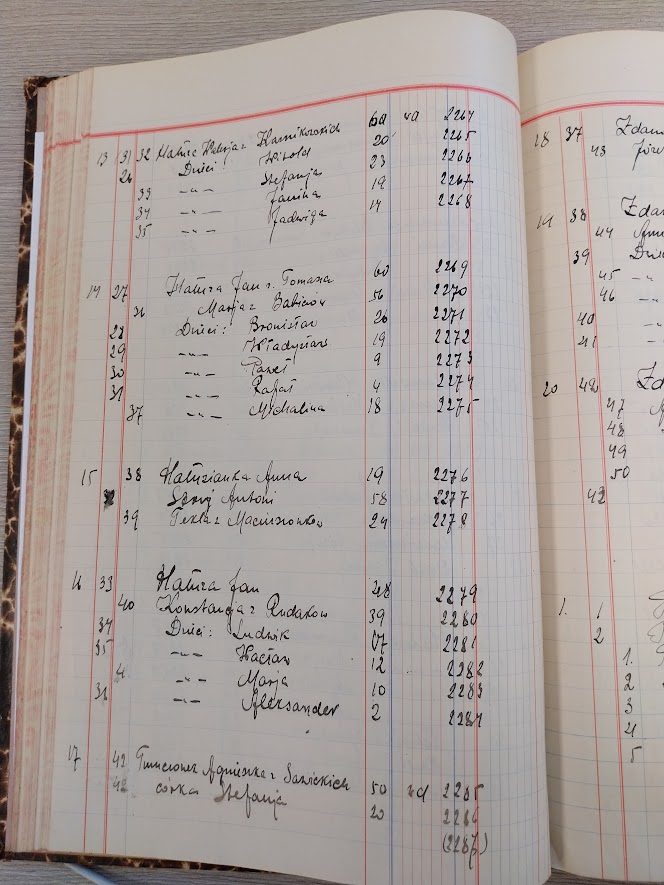 13 31 32 Hałuza Helena z Karnikowskich 60 wd 2264
26 Dzieci: Witold 20 2265
33 -„- Stefanja 23 2266
34 -„- Janina 19 2267
35 -„- Jadwiga 14 2268
14 27 Hałuza Jan s. Tomasza 60 2269
36 Marja z Babiców 56 2270
28 Dzieci: Bronisław 26 2271
29 -„- Władysław 19 2272
30 -„- Paweł 9 2273
31 -„- Rafał 4 2274
37 -„- Michalina 18 2275
15 38 Hałuzianka Anna 19 2276
Antoni 58 2277
39 Tekla z 24 2278
16 33 Hałuza Jan 48 2279
40 Konstancja z Rudaków 39 2280
34 Dzieci: Ludwik 17 2281
35 -„- Wacław 12 2282
-„- Marja 10 2283
-„- Aleksander 2 2284
17 42 Agnieszka z Sawickich 50 wd 2285
córka Stefanja 20 2286
(2287)
18 37
43
19 38
44
39
45
46
40
41
20 42
47
48
49
50
42
1. 1
2
1.
2
3
4
5